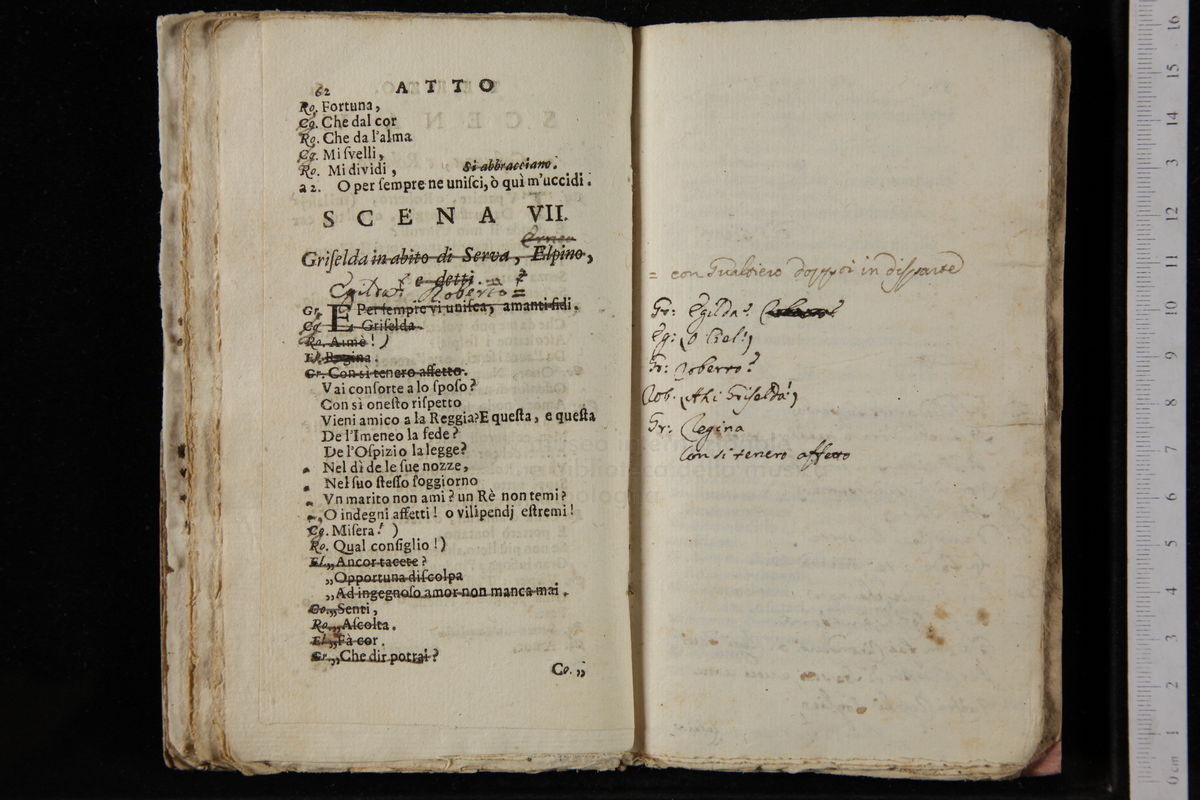 62 ATTO
Ro. Fortuna,
Cg. Che dal cor
Rg. Che da l'alma
Cg. Mi ſvelli,
Ro. Mi dividi, Si abbracciano.
a 2. O per ſempre ne uniſci, ò quì m'uccidi.
SCENA VII.
Griſelda in abito di Serva, Elpino,
e detti.
Roberto =
Gr. E Per ſempre vi uniſca, amanti fidi.
Cg. Griſelda.
Ro. Aimè! )
El. Regina.
Gr. Con sì tenero affetto.
Vai conſorte a lo ſpoſo?
Con sì oneſto riſpetto
Vieni amico a la Reggia? E queſta, e queſta
De l'Imeneo la fede?
De l'Oſpizio la legge?
Nel dì de le ſue nozze,
Nel ſuo ſteſſo ſoggiorno
Vn marito non ami? un Rè non temi?
„O indegni affetti! o vilipendj eſtremi!
Cg. Miſera! )
Ro. Qual conſiglio!)
El.„Ancor tacete?
„Opportuna diſcolpa
„Ad ingegnoſo amor non manca mai.
Co.„Senti,
Ro.„Aſcolta.
El.„Fà cor.
Gr.„Che dir potrai?
Co.„
= con Gualtiero doppoi in disparte
Gr: Egilda?
Eg: (O Ciel!)
Gr: Roberto?
Rob. (Ahi Griselda!)
Gr: Regina
Con si tenero affetto